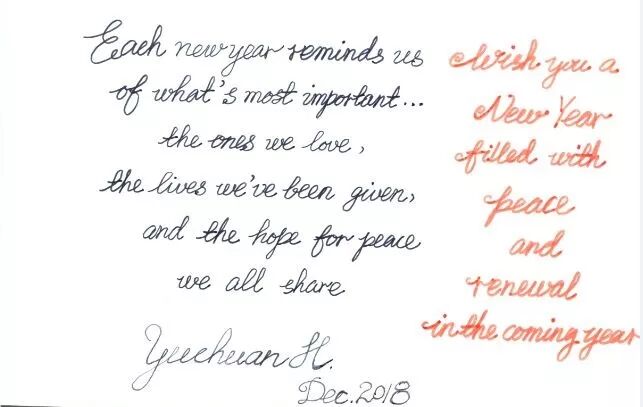 Each new year reminds us
of what's most important...
the ones we love,
the lives we've been given,
and the hope for peace
we all share
Yuchuan H.
Dec. 2018
Wish you a
New Year
filled with
peace
and
renewal
in the coming year